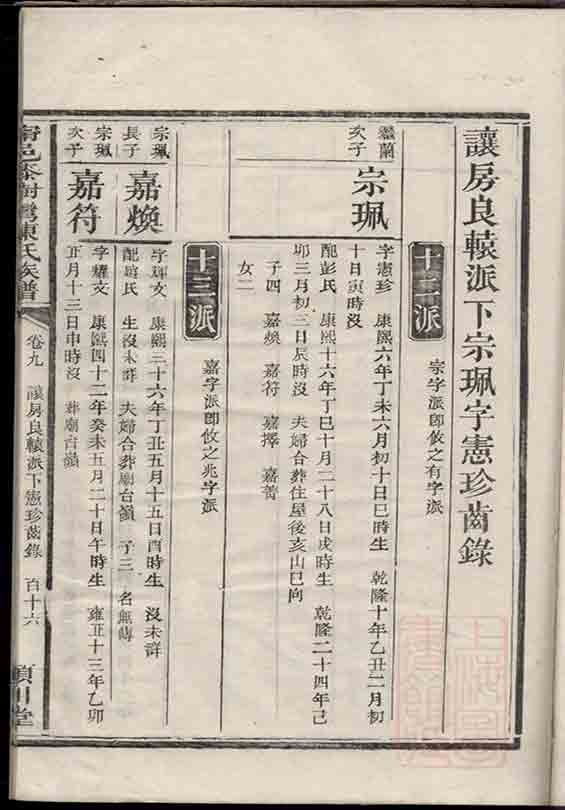 讓房良轅派下宗珮字憲珍齒錄
十二派
宗字派即攸之有字派
繼蘭
次子
宗珮
字憲珍 康熙六年丁未六月初十日巳時生 乾隆十年乙丑二月初
十日寅時沒
配彭氏 康熙十六年丁巳十月二十八日戌時生 乾隆二十四年己
卯三月初三日辰時沒 夫婦合葬住屋後亥山巳向
子四 嘉煥 嘉符 嘉擇 嘉菁
女二
十三派
嘉字派即攸之兆字派
宗珮
長子
嘉煥
字輝文 康熙三十六年丁丑五月十五日酉時生 沒未詳
配 氏 生沒未詳 夫婦合葬廟台嶺 子三 名無傳
宗珮
次子
嘉符
字耀文 康熙四十二年癸未五月二十日午時生 雍正十三年乙卯
正月十三日申時沒 葬廟台嶺
陳氏族譜
卷九 讓房良轅派下憲珍齒錄 百十六
潁川堂